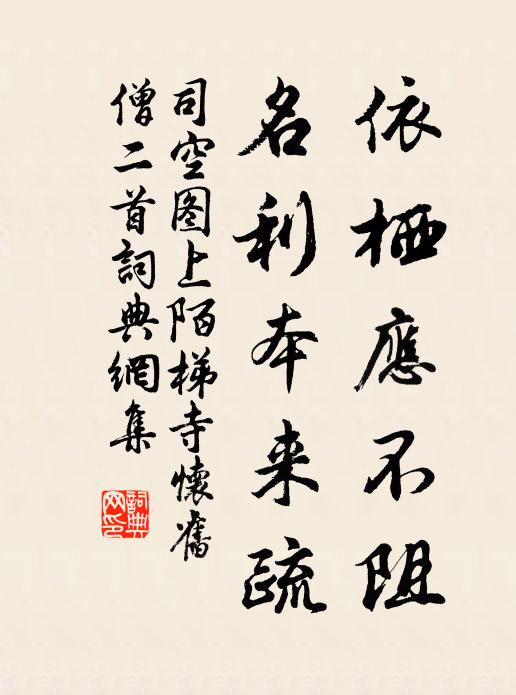 依栖應不阻
名利本来疏
司空图上陌梯寺懷舊
僧二首詞典網集
詞典
网印